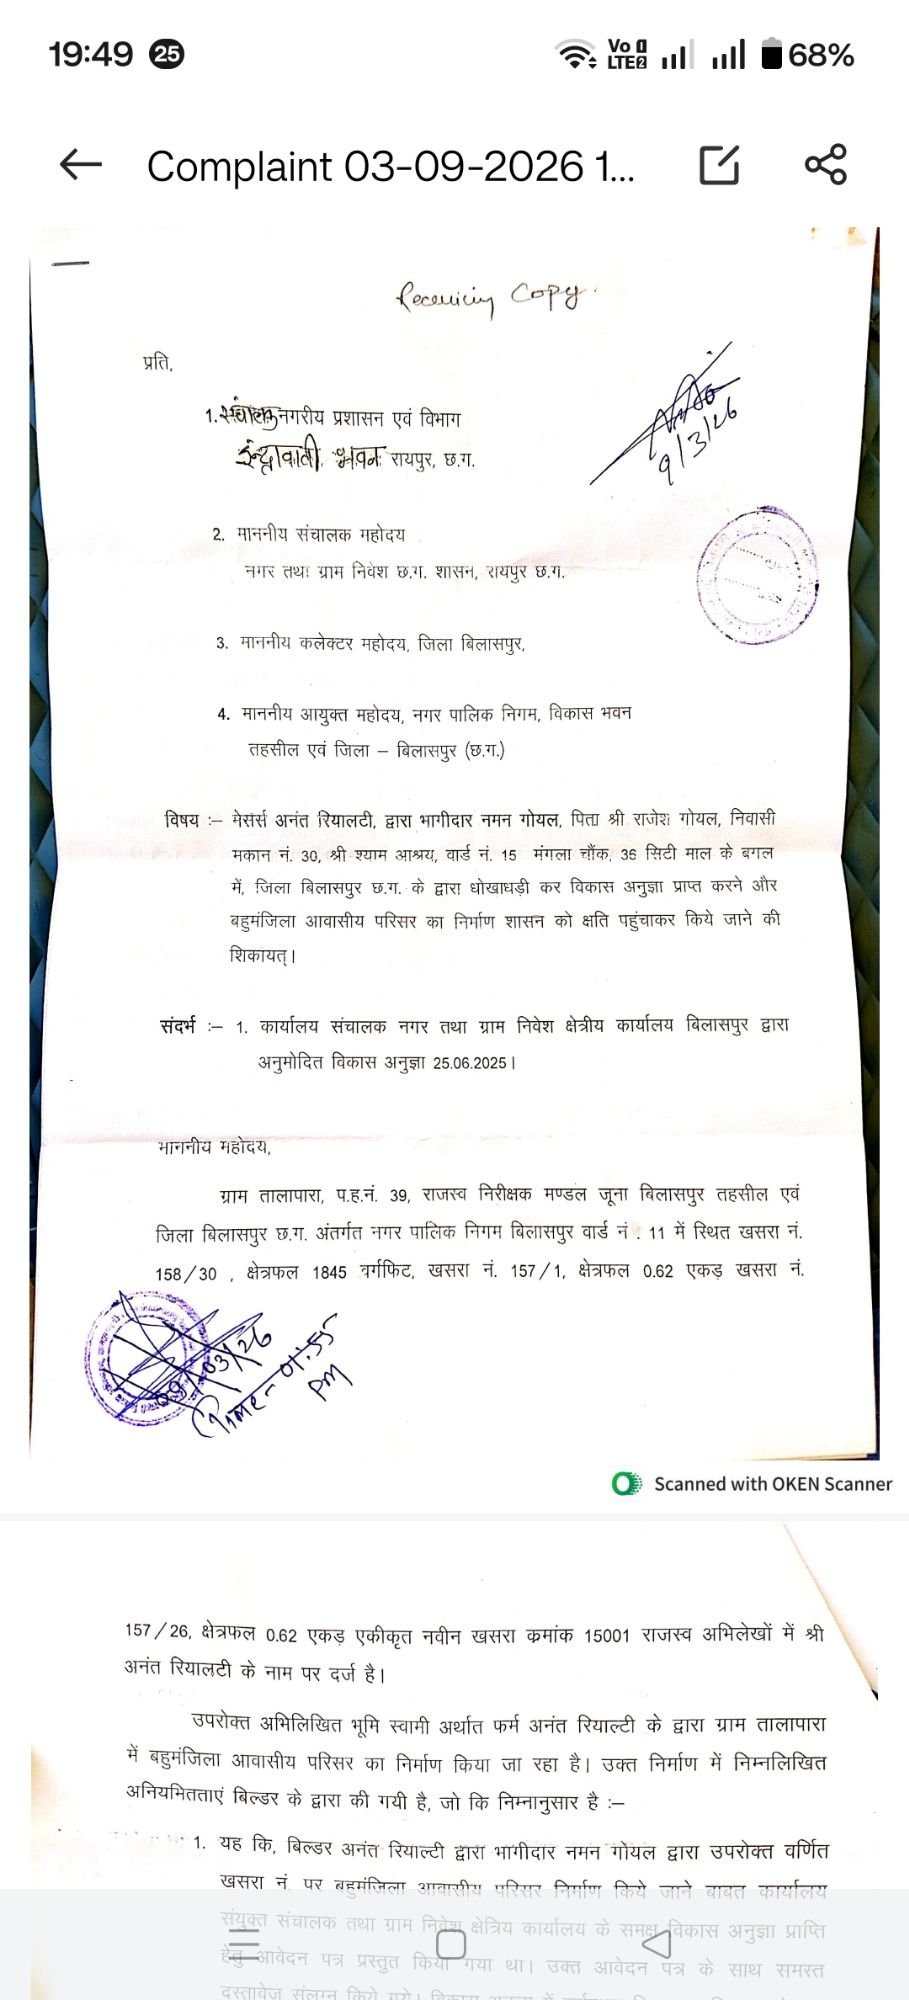 19:49 25 Vo LTE 68%
Complaint 03-09-2026 1...
Receiving Copy.
प्रति,
9/3/26
1. संचालक नगरीय प्रशासन एवं विभाग
इंद्रावती भवन रायपुर, छ.ग.
2. माननीय संचालक महोदय
नगर तथा ग्राम निवेश छ.ग. शासन, रायपुर छ.ग.
3. माननीय कलेक्टर महोदय, जिला बिलासपुर,
4. माननीय आयुक्त महोदय, नगर पालिक निगम, विकास भवन
तहसील एवं जिला – बिलासपुर (छ.ग.)
विषय :– मेसर्स अनंत रियालटी, द्वारा भागीदार नमन गोयल, पिता श्री राजेश गोयल, निवासी
मकान नं. 30, श्री श्याम आश्रय, वार्ड नं. 15 मंगला चौंक, 36 सिटी माल के बगल
में, जिला बिलासपुर छ.ग. के द्वारा धोखाधड़ी कर विकास अनुज्ञा प्राप्त करने और
बहुमंजिला आवासीय परिसर का निर्माण शासन को क्षति पहुंचाकर किये जाने की
शिकायत्।
संदर्भ :– 1. कार्यालय संचालक नगर तथा ग्राम निवेश क्षेत्रीय कार्यालय बिलासपुर द्वारा
अनुमोदित विकास अनुज्ञा 25.06.2025।
माननीय महोदय,
ग्राम तालापारा, प.ह.नं. 39, राजस्व निरीक्षक मण्डल जूना बिलासपुर तहसील एवं
जिला बिलासपुर छ.ग. अंतर्गत नगर पालिक निगम बिलासपुर वार्ड नं . 11 में स्थित खसरा नं.
158/30 , क्षेत्रफल 1845 वर्गफिट, खसरा नं. 157/1, क्षेत्रफल 0.62 एकड़ खसरा नं.
09/03/26
Time – 01:55
PM
Scanned with OKEN Scanner
157/26, क्षेत्रफल 0.62 एकड़ एकीकृत नवीन खसरा क्रमांक 15001 राजस्व अभिलेखों में श्री
अनंत रियालटी के नाम पर दर्ज है।
उपरोक्त अभिलिखित भूमि स्वामी अर्थात फर्म अनंत रियाल्टी के द्वारा ग्राम तालापारा
में बहुमंजिला आवासीय परिसर का निर्माण किया जा रहा है। उक्त निर्माण में निम्नलिखित
अनियमितताएं बिल्डर के द्वारा की गयी है, जो कि निम्नानुसार है :–
1. यह कि, बिल्डर अनंत रियाल्टी द्वारा भागीदार नमन गोयल द्वारा उपरोक्त वर्णित
खसरा नं. पर बहुमंजिला आवासीय परिसर निर्माण किये जाने बाबत कार्यालय
संयुक्त संचालक तथा ग्राम निवेश क्षेत्रिय कार्यालय के समक्ष विकास अनुज्ञा प्राप्ति
हेतु आवेदन पत्र प्रस्तुत किया गया था। उक्त आवेदन पत्र के साथ समस्त
दस्तावेज संलग्न किये गये।